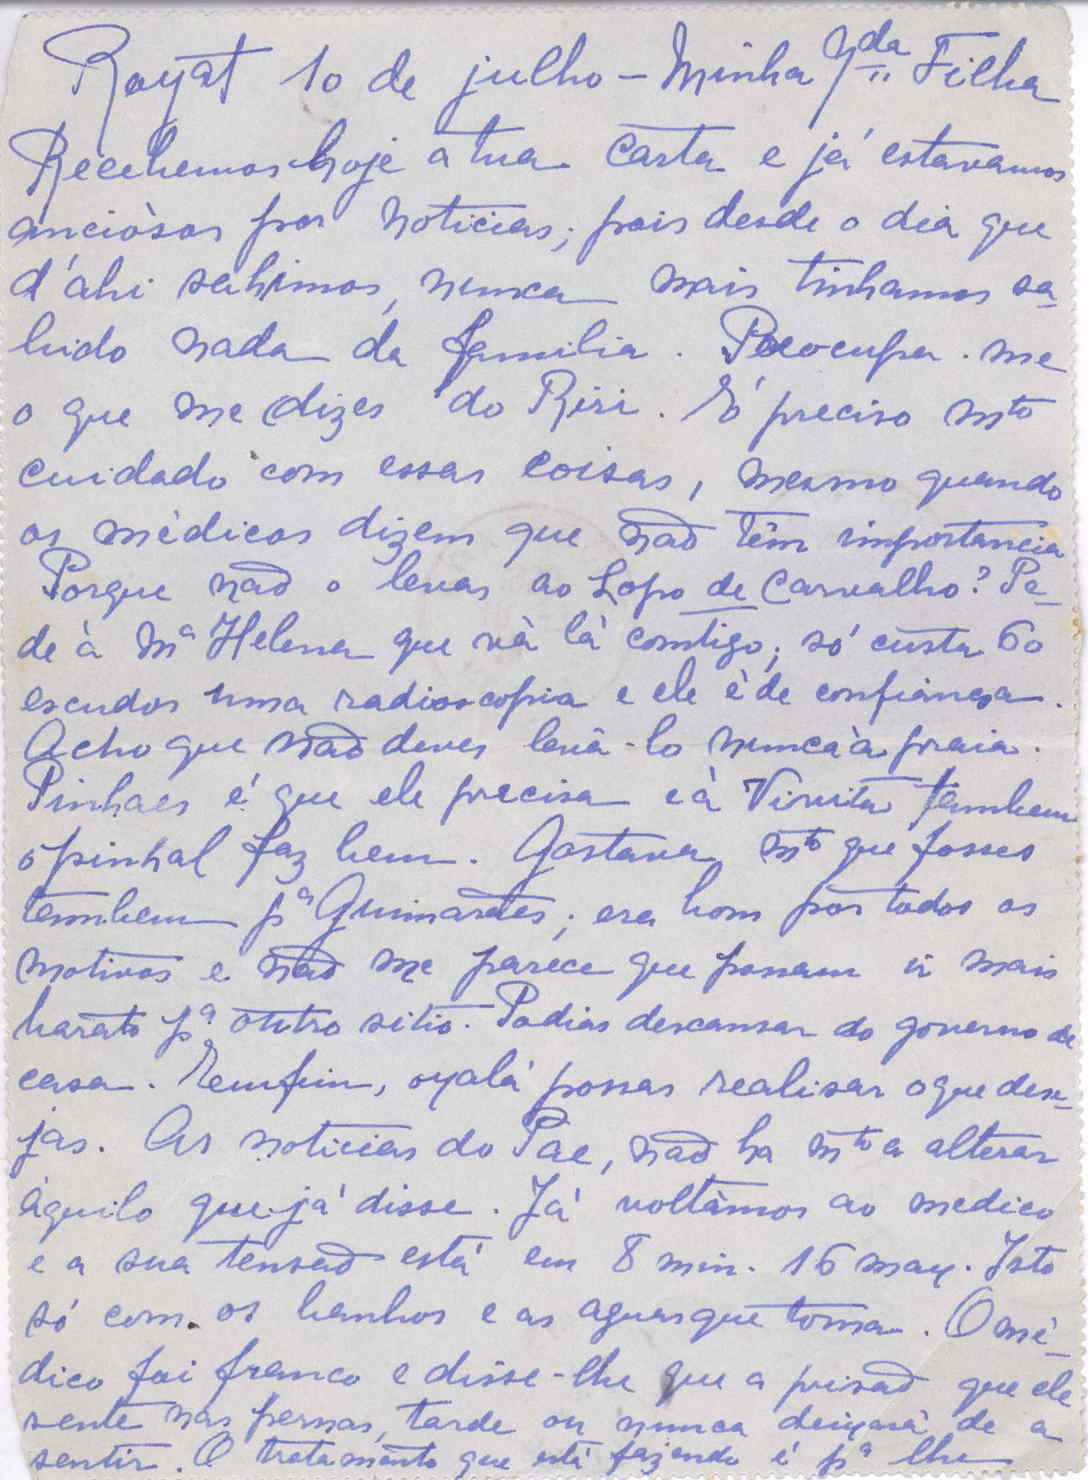 Royat 10 de julho - Minha Qda Filha
Recebemos hoje a tua carta e já estavamos
anciósos por noticias; pois desde o dia que
d'ahi sahimos, nunca mais tinhamos sa-
bido nada da familia. Preocupa-me
o que me dizes do Riri. É preciso mto
cuidado com essas coisas, mesmo quando
os médicos dizem que não têm importancia
Porque não o levas ao Lopo de Carvalho? Pe-
de à Ma Helena que và là comtigo; só custa 60
escudos uma radioscopia e ele é de confiança.
Acho que não deves levâ-lo nunca à praia.
Pinhaes é que ele precisa e à Viruita tambem
o pinhal faz bem. Gostava mto que fosses
tambem pa Guimarães; era bom por todos os
motivos e não me parece que possam ir mais
barato pa outro sitio. Podias descansar do governo de
casa. Emfim, oxalá possas realisar o que dese-
jas. As noticias do Pae, não ha mto a alterar
àquilo que já disse. Já voltàmos ao medico
e a sua tensão está em 8 min. 16 max. Isto
só com os banhos e as aguas que toma. O mé-
dico foi franco e disse-lhe que a prisão que ele
sente nas pernas, tarde ou nunca deixará de a
sentir. O tratamento que está fazendo é pa lhe